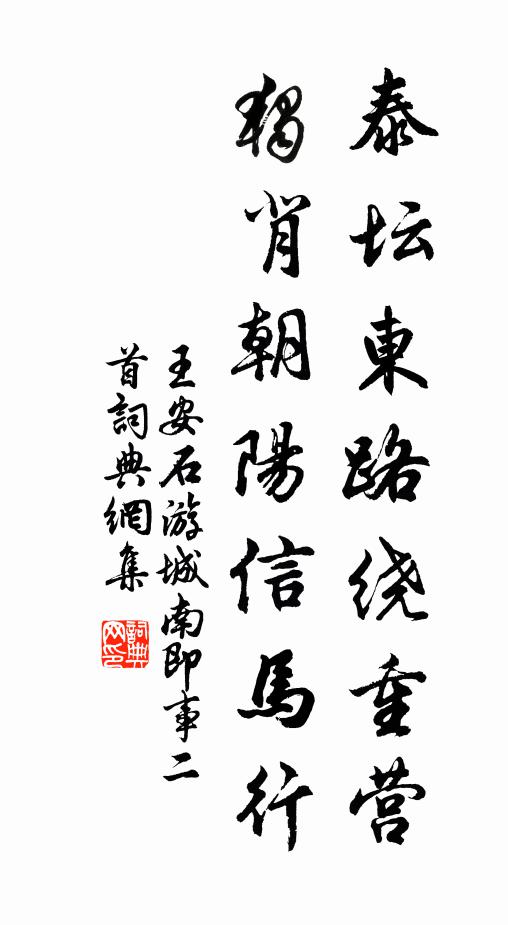 泰坛東路绕重营
獨背朝陽信馬行
王安石游城南即事二
首詞典網集
詞典网印